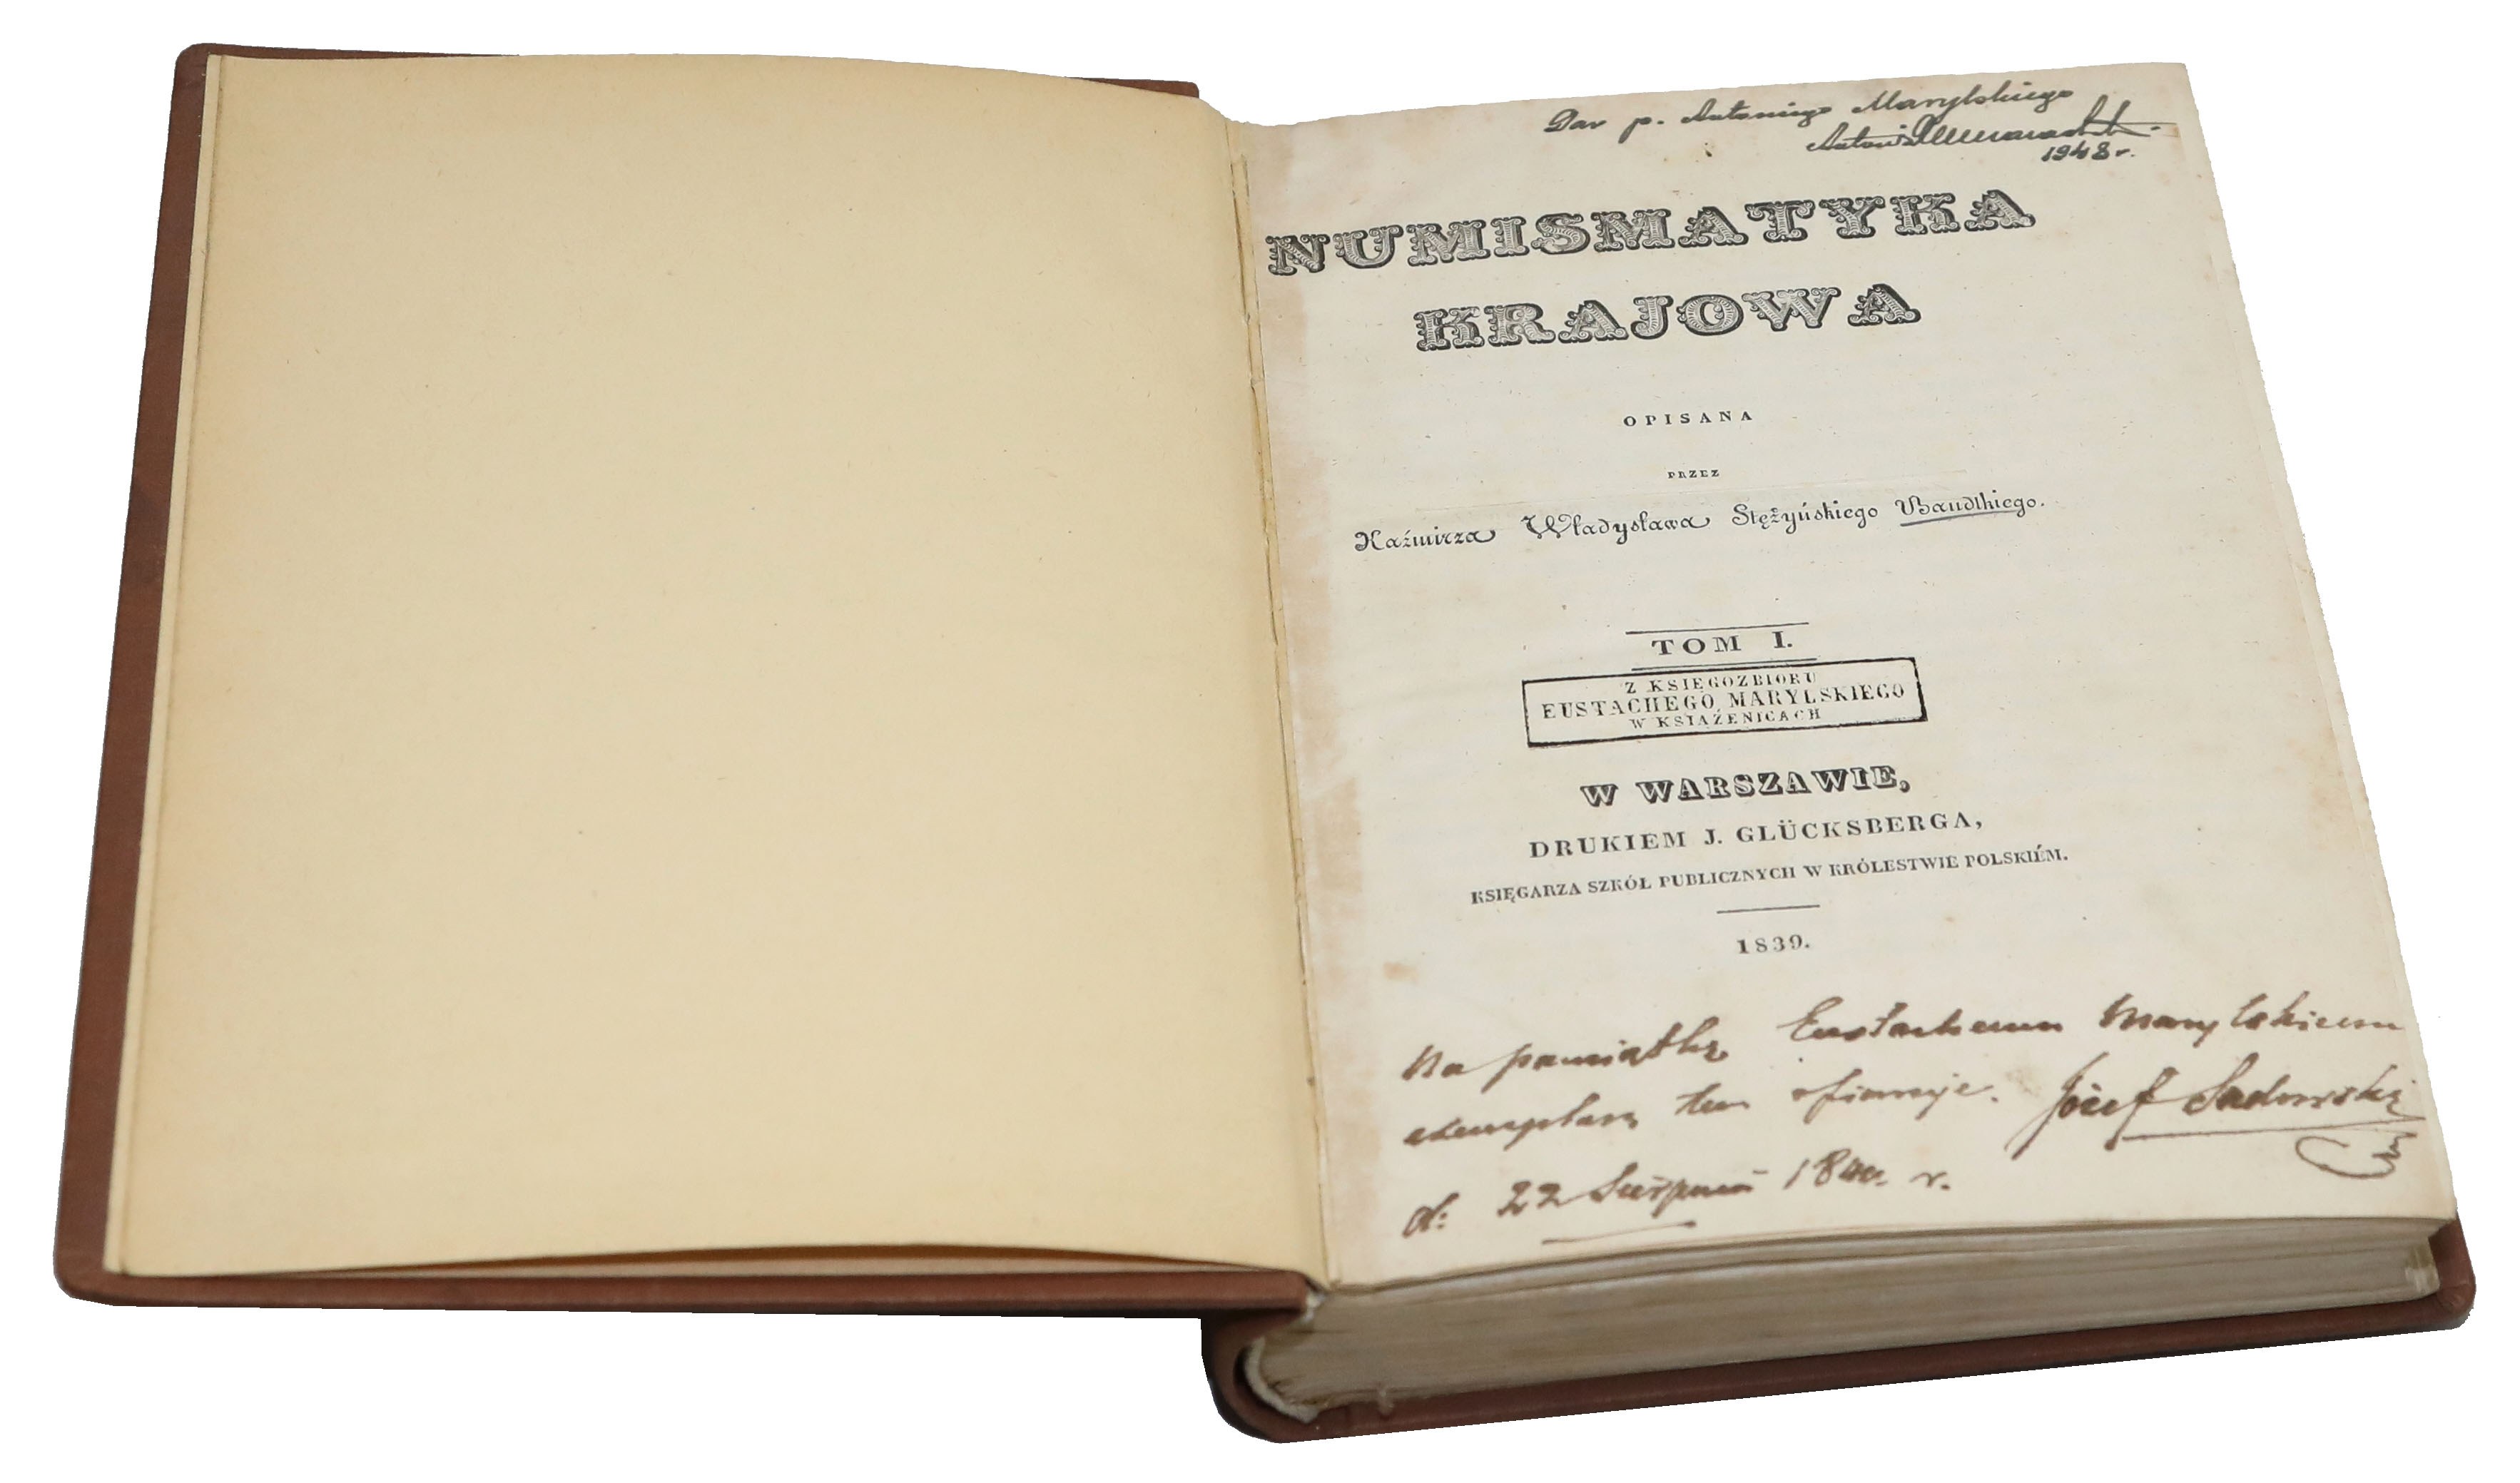 Dar p. Antoniego Marylskiego
Antoni
1948 r.
NUMISMATYKA
KRAJOWA
OPISANA
PRZEZ
Kaźmirza Władysława Stężyńskiego Bandtkiego.
TOM I.
Z KSIĘGOZBIORU
EUSTACHEGO MARYLSKIEGO
W KSIĄŻENICACH
W WARSZAWIE,
DRUKIEM J. GLÜCKSBERGA,
KSIĘGARZA SZKÓŁ PUBLICZNYCH W KRÓLESTWIE POLSKIÉM.
1839.
Na pamiątkę Eustachemu Marylskiemu
exemplarz ten ofiaruje. Józef Sadowski
d: 22 Sierpnia r.